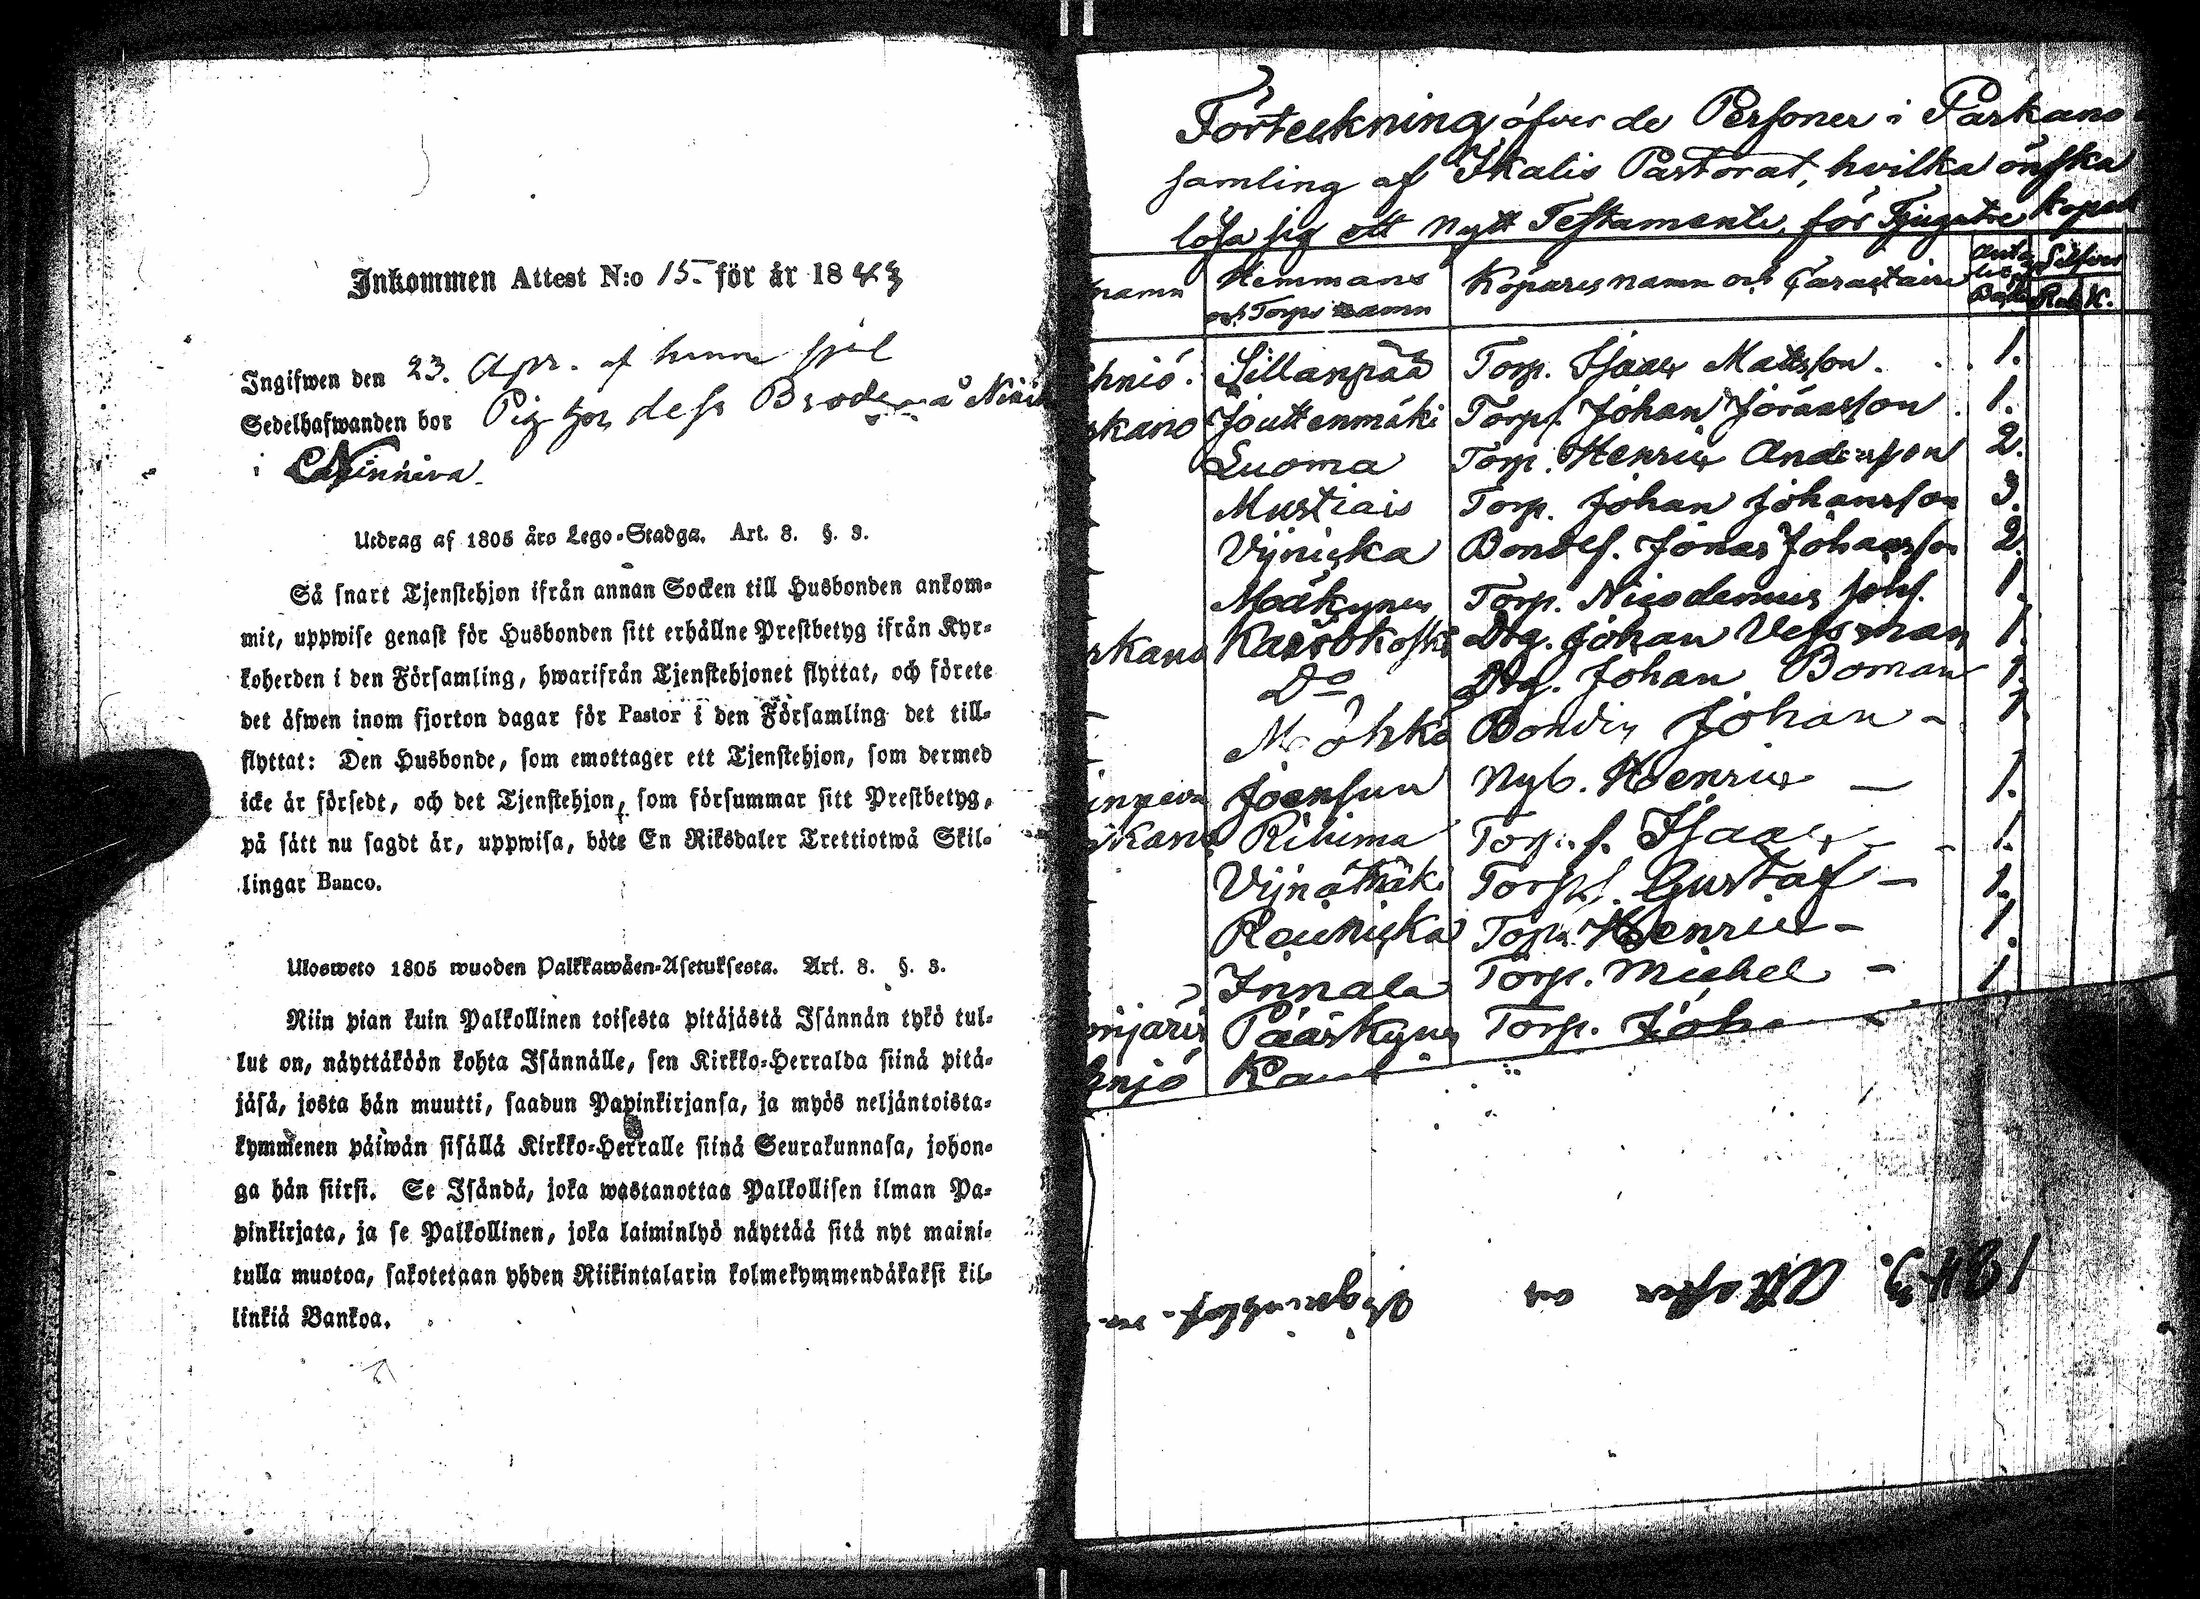 Inkommen Attest N:o 15. för år 1843
Ingifwen den 23. Apr. af
Sedelhafwanden bor dess
i
Utdrag af 1805 års Lego-Stadga. Art. 8. §. 3.
Så snart Tjenstehjon ifrån annan Socken till Husbonden ankom-
mit, uppwise genast för Husbonden sitt erhållne Prestbetyg ifrån Kyr-
koherden i den Församling, hwarifrån Tjenstehjonet flyttat, och förete
det äfwen inom fjorton dagar för Pastor i den Församling det till-
flyttat: Den Husbonde, som emottager ett Tjenstehjon, som dermed
icke är försedt, och det Tjenstehjon, som försummar sitt Prestbetyg,
på sätt nu sagdt är, uppwisa, böte En Riksdaler Trettiotwå Skil-
lingar Banco.
Ulosweto 1805 wuoden Palkkawäen-Asetuksesta. Art. 8. §. 3.
Niin pian kuin Palkollinen toisesta pitäjästä Isännän tykö tul-
lut on, näyttäköön kohta Isännälle, sen Kirkko-Herralda siinä pitä-
jäsä, josta hän muutti, saadun Papinkirjansa, ja myös neljäntoista-
kymmenen päiwän sisällä Kirkko-Herralle siinä Seurakunnasa, johon-
ga hän siirsi. Se Isändä, joka wastanottaa Palkollisen ilman Pa-
pinkirjata, ja se Palkollinen, joka laiminlyö näyttää sitä nyt maini-
tulla muotoa, sakotetaan yhden Riikintalarin kolmekymmendäkaksi kil-
linkiä Bankoa.
Förteckning öfver de Personer i Parkano
samling af Ikalis Pastorat, hvilka önska
lösa sig ett Nytt Testamente, för Tjugutre kopek
namn Hemmans och Torps namn Köpares namn och Caractaire Silfver Rub. K.
hniö. Sillanpää Torp. Isaac Matsson. 1.
rkano Jouttenmäki Torps. Johan Joransson. 1.
Luoma Torp. Henric Andersson 2.
Mustiais Torp. Johan Johansson 3.
Vijnicka Bondes. Jonas Johansson 2.
Mäkynen Torp. Nicodemus Johs. 1.
rkano Kairokoski Drg. Johan Vessman 1.
Do Drg. Johan Boman 1.
Bonden Johan - 1.
Joensuu Nyb. Henric - 1.
rkano Torp. s. Isaac - 1.
Torps. Gustaf - 1.
Torp. Henric - 1.
Innala Torp. Michel - 1.
mjärvi Pääskynen Torp. Joh
hniö
1843.